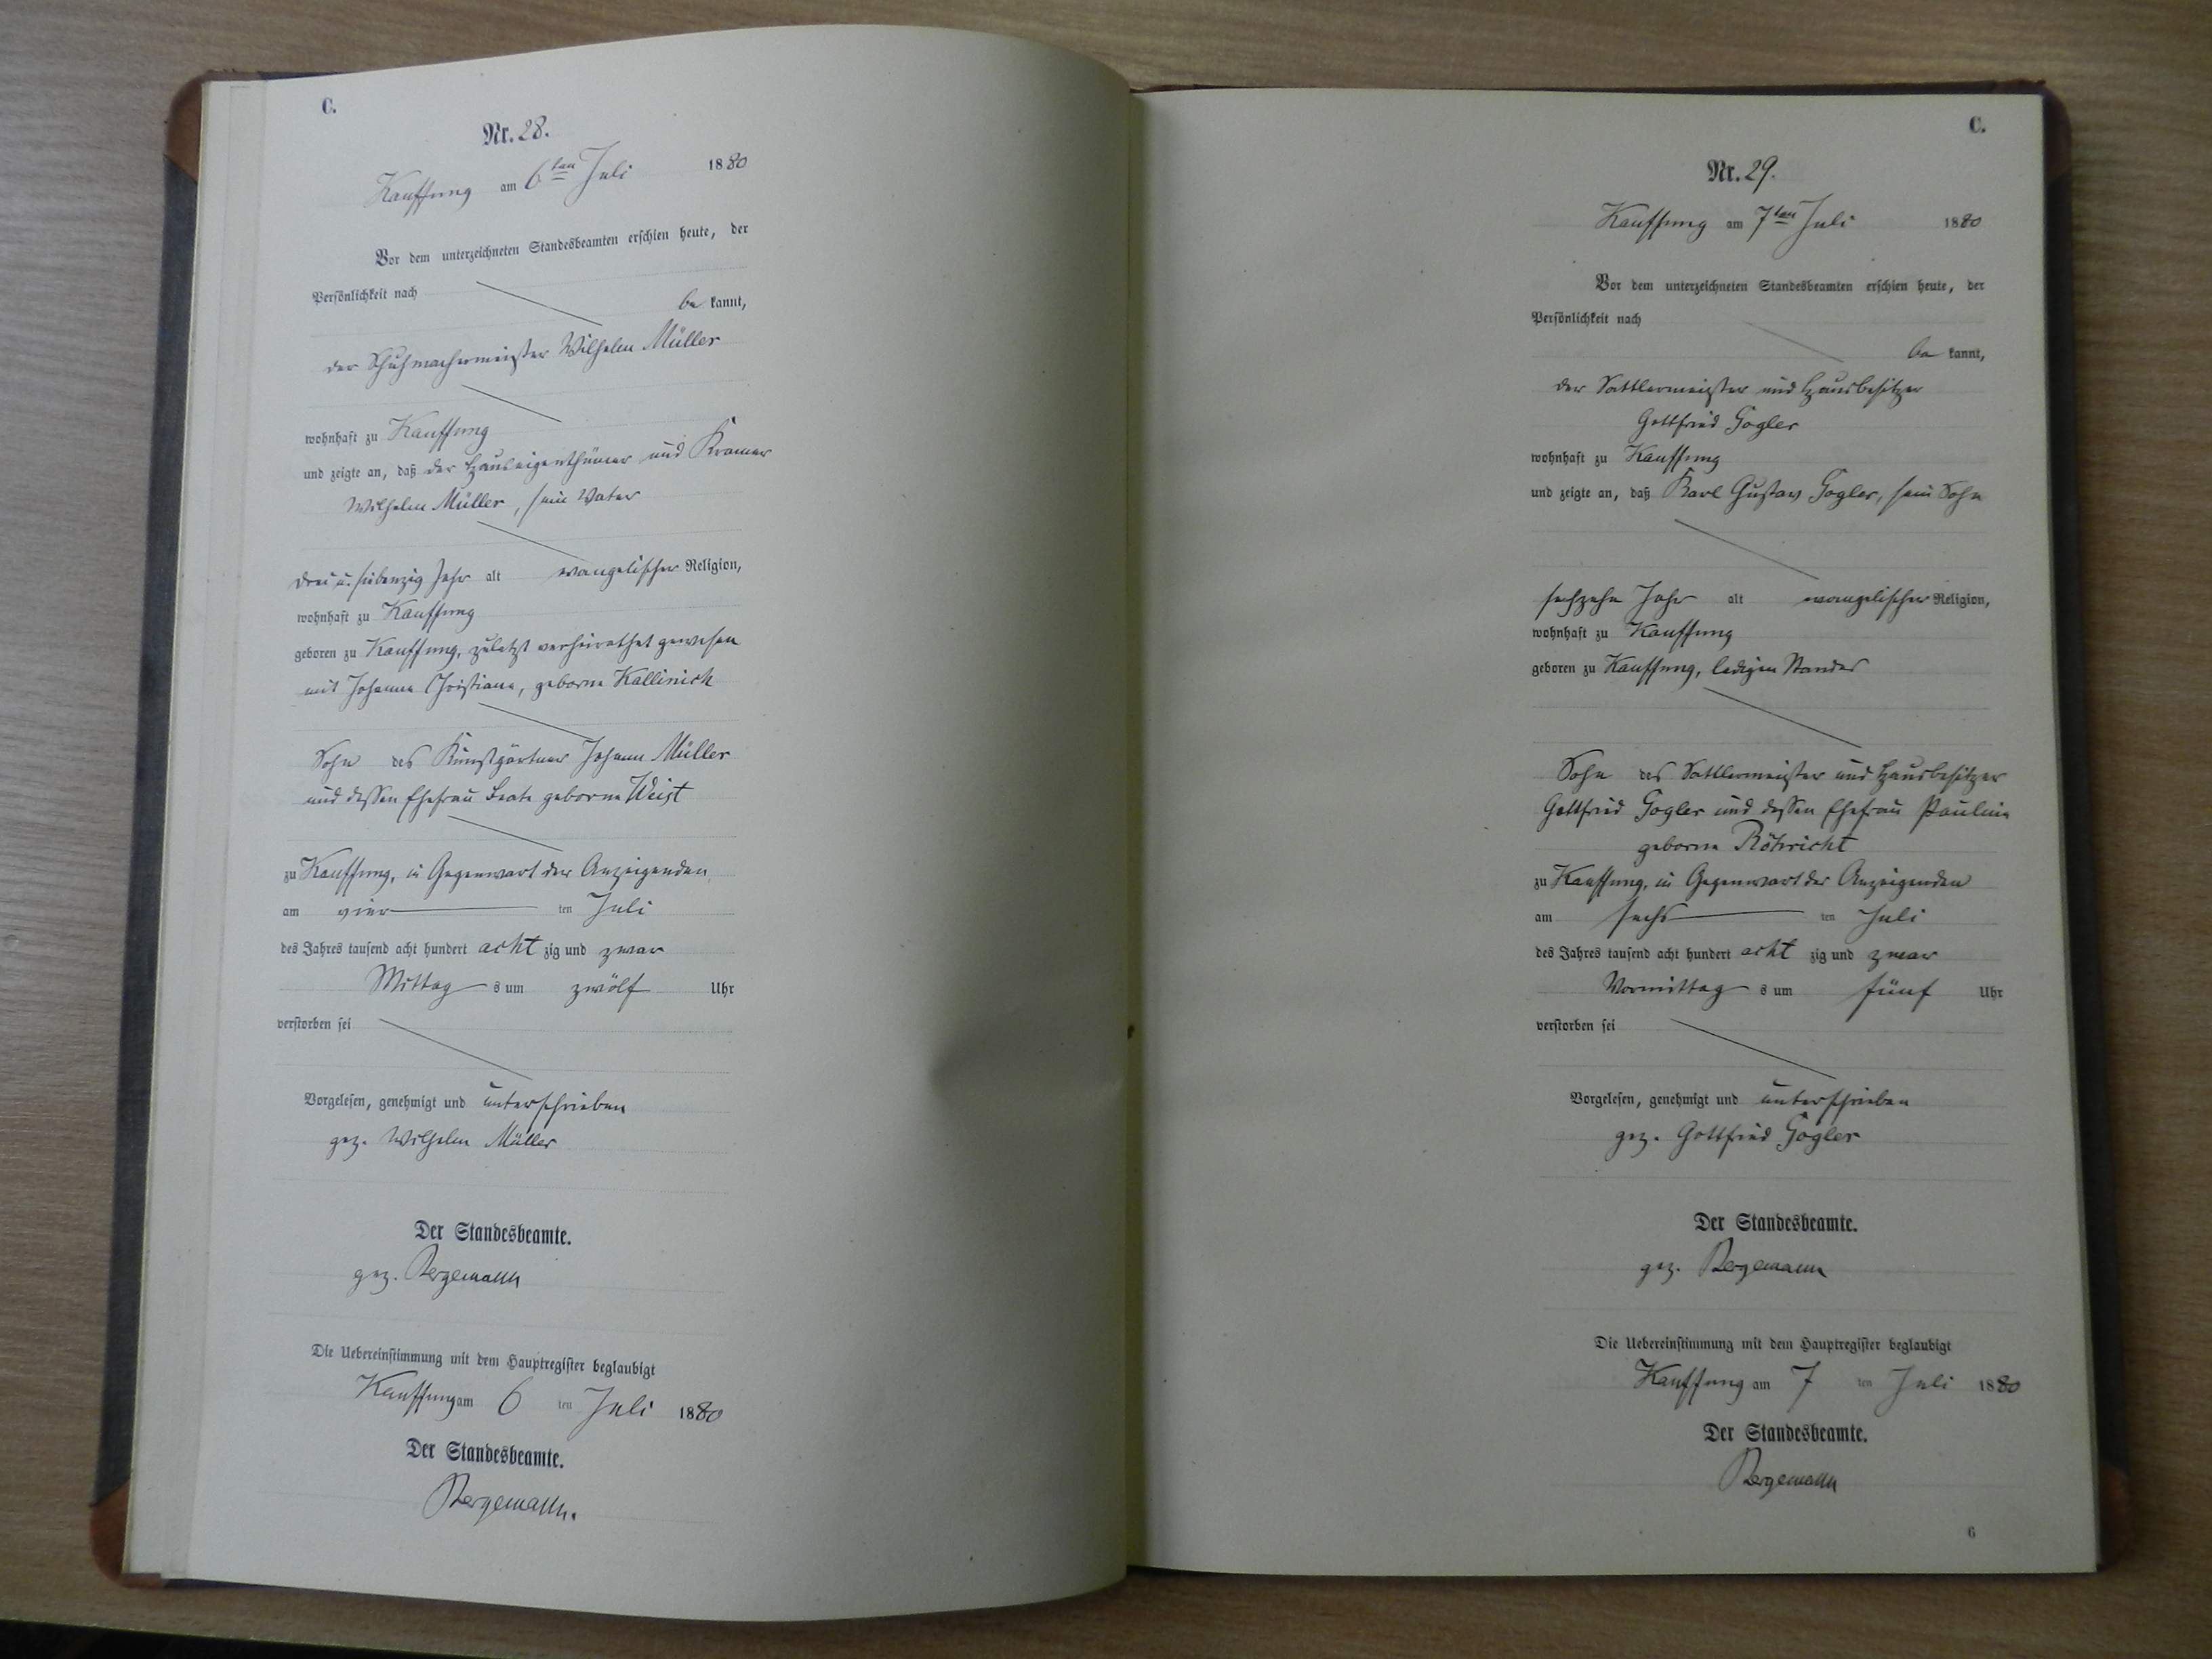 C.
Nr. 28.
Kauffung am 6ten Juli 1880
Vor dem unterzeichneten Standesbeamten erschien heute, der
Persönlichkeit nach
be kannt,
der Schuhmachermeister Wilhelm Müller
wohnhaft zu Kauffung
und zeigte an, daß der Hauseigenthümer und Kramer
Wilhelm Müller, sein Vater
drei u. siebenzig Jahr alt evangelischer Religion,
wohnhaft zu Kauffung
geboren zu Kauffung, zuletzt verheirathet gewesen
mit Johanne Christiane, geborne Kallinich
Sohn des Kunstgärtner Johann Müller
und dessen Ehefrau Beate geborne Weist
zu Kauffung, in Gegenwart des Anzeigenden
am vier ten Juli
des Jahres tausend acht hundert acht zig und zwar
Mittag s um zwölf Uhr
verstorben sei
Vorgelesen, genehmigt und unterschrieben
gez. Wilhelm Müller
Der Standesbeamte.
gez. Bergemann
Die Uebereinstimmung mit dem Hauptregister beglaubigt
Kauffung am 6 ten Juli 1880
Der Standesbeamte.
Bergemann.
C.
Nr. 29.
Kauffung am 7ten Juli 1880
Vor dem unterzeichneten Standesbeamten erschien heute, der
Persönlichkeit nach
be kannt,
der Sattlermeister und Hausbesitzer
Gottfried Gogler
wohnhaft zu Kauffung
und zeigte an, daß Karl Gustav Gogler, sein Sohn
sechzehn Jahr alt evangelischer Religion,
wohnhaft zu Kauffung
geboren zu Kauffung, ledigen Standes
Sohn des Sattlermeister und Hausbesitzer
Gottfried Gogler und dessen Ehefrau Pauline
geborne Röhricht
zu Kauffung, in Gegenwart des Anzeigenden
am sechs ten Juli
des Jahres tausend acht hundert acht zig und zwar
Vormittag s um fünf Uhr
verstorben sei
Vorgelesen, genehmigt und unterschrieben
gez. Gottfried Gogler
Der Standesbeamte.
gez. Bergemann
Die Uebereinstimmung mit dem Hauptregister beglaubigt
Kauffung am 7 ten Juli 1880
Der Standesbeamte.
Bergemann
6